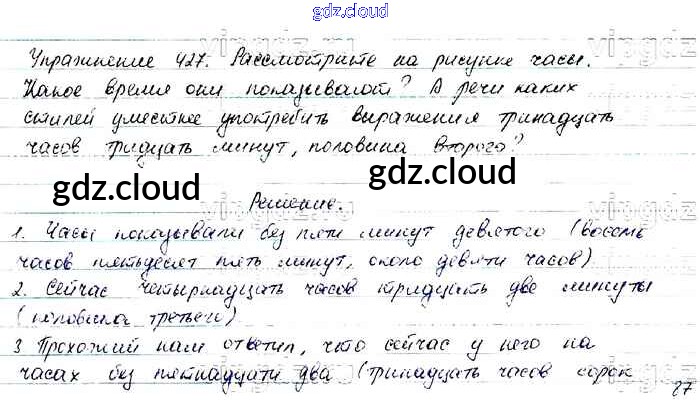 gdz.cloud
Упражнение 427. Рассмотрите на рисунке часы.
Какое время они показывают? В речи каких
стилей уместнее употребить выражения тринадцать
часов тридцать минут, половина второго?
gdz.cloud
gdz.cloud
Решение.
1. Часы показывали без пяти минут девятого (восемь
часов пятьдесят пять минут, около девяти часов)
2. Сейчас четырнадцать часов тридцать две минуты
(половина третьего)
3 Прохожий нам ответил, что сейчас у него на
часах без пятнадцати два (тринадцать часов сорок
27